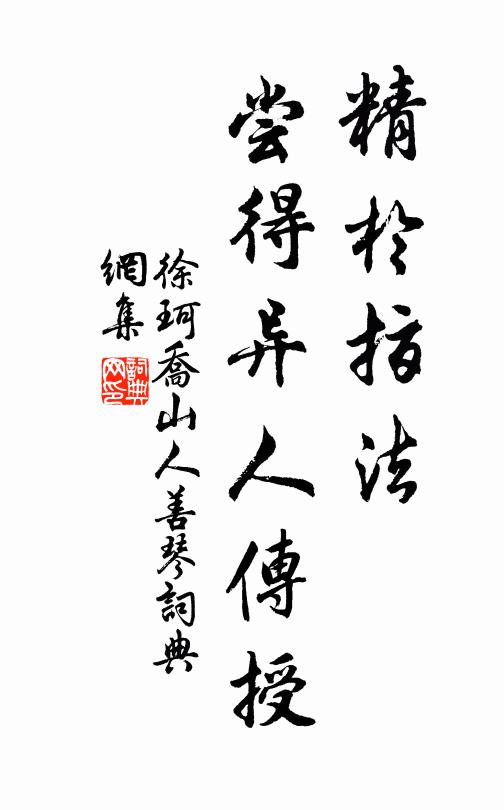 精於指法
尝得异人傳授
徐珂喬山人善琴詞典
網集
詞典
网印